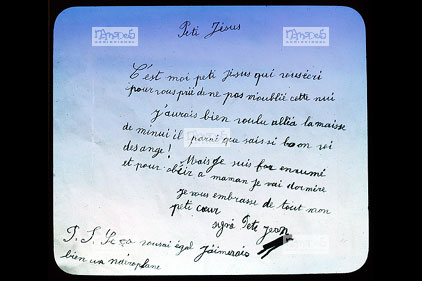 Peti Jésus
C'est moi peti Jésus qui vousécri
pour vous prié de ne pas m'oublié cette nui
j'aurais bien voulu allé a la maisse
de minui il parné que sais si boon roi
des ange!
Mais je suis for enrumé
et pour obéir a maman je vai dormire
je vous embrasse de tout mon
peti cœur
signé Peti Jean
P. S. Se ça vousai égal j'aimerais
bien un aéroplane